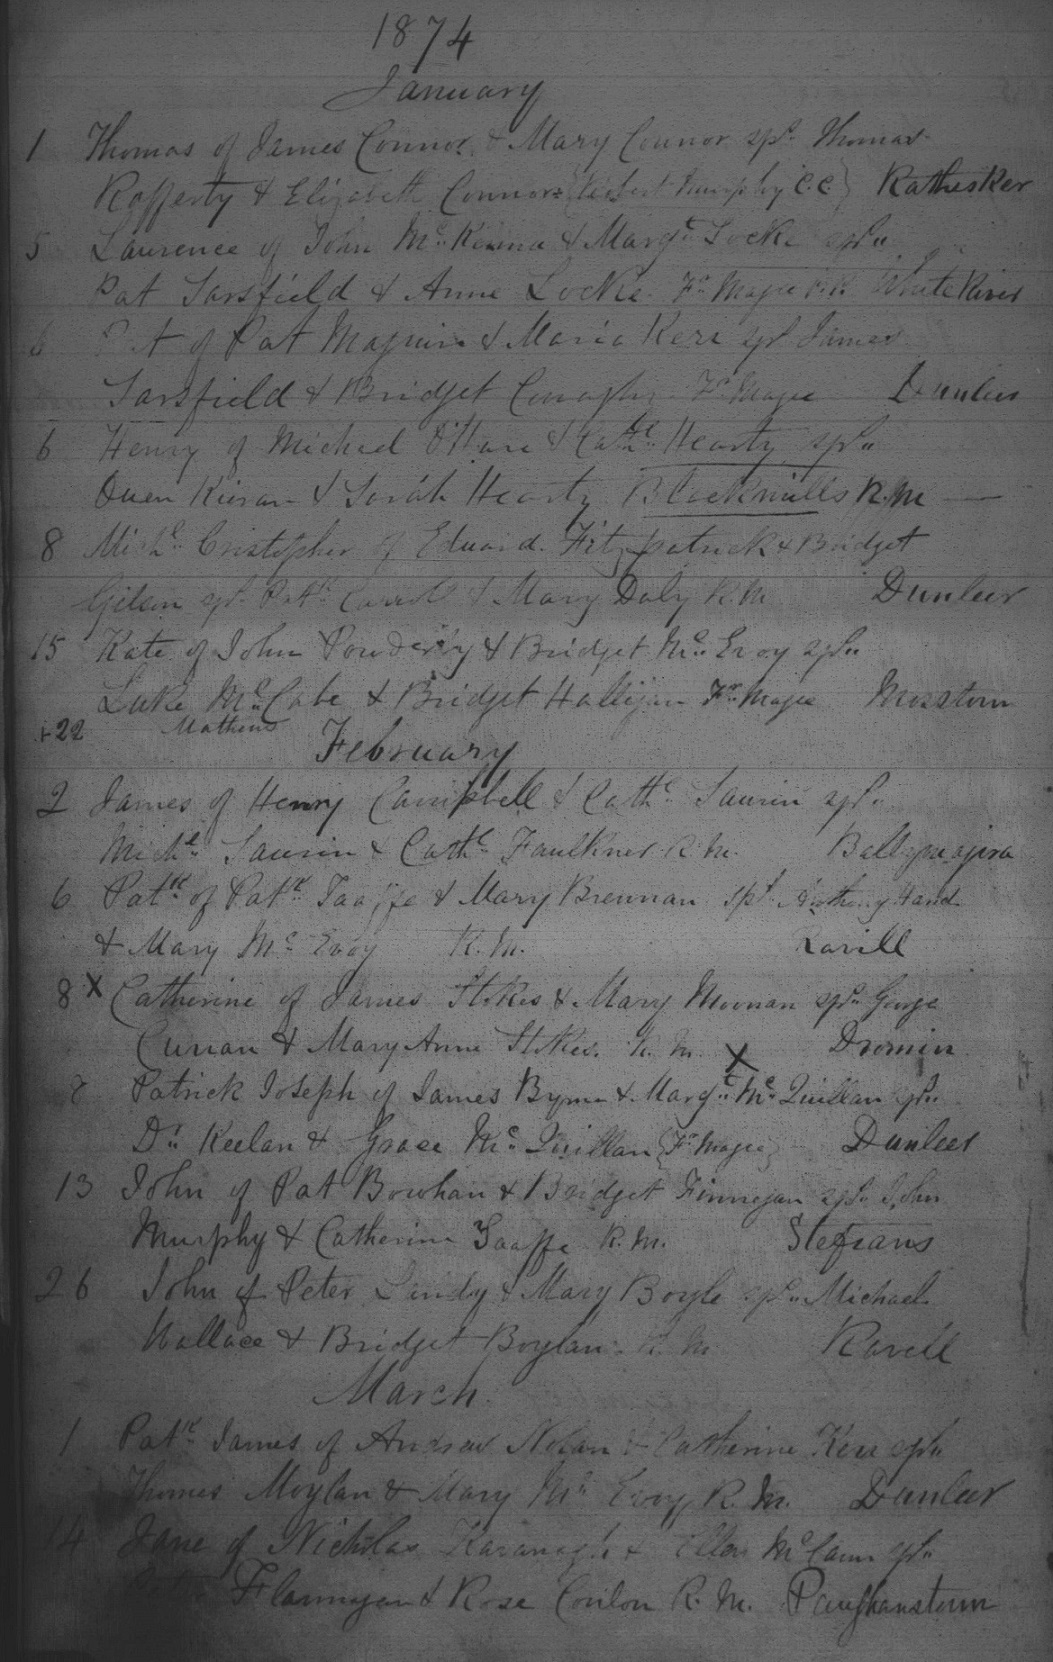 1874
January
1 Thomas of James Connor & Mary Connor sps. Thomas
Rafferty & Elizabeth Connor {Robert Murphy C.C.} Rathesker
5 Laurence of John McKenna & Margt Locke sps.
Pat Sarsfield & Anne Locke. Fr Magee P.P. White River
6 Pat of Pat Maguire & Maria Kerr sps James
Sarsfield & Bridget Fr Magee Dunleer
6 Henry of Michael O'Hare & Cathe Hearty sps.
Owen Kieran & Sarah Hearty Blackmills R.M
8 Michl. Cristopher of Edward. Fitzpatrick & Bridget
Gilsen sps. Patk. Carroll & Mary Daly R.M Dunleer
15 Kate of John Powderly & Bridget Mc Evoy sps.
Luke McCabe & Bridget Halligan Fr Magee Mosstown
+22 Mathews
February
2 James of Henry Campbell & Cathe Saurin sps.
Michl. Saurin & Cathe Faulkner R.M.
6 Patk of Patk Taaffe & Mary Brennan sps. Anthony Hand
& Mary Mc Evoy R.M. Ravill
8 X Catherine of James Stokes & Mary Moonan sps. George
Curran & Mary Anne Stokes. R.M. X Dromin
8 Patrick Joseph of James Byrne & Margt. Mc Quillan sps.
Dr. Keelan & Grace Mc Quillan {Fr Magee} Dunleer
13 John of Pat Bowhan & Bridget Finnegan sps. John
Murphy & Catherine Taaffe R.M.
26 John of Peter Lundy & Mary Boyle sps. Michael
Wallace & Bridget Boylan R.M Ravell
March.
1 Patk James of Andrew Nolan & Catherine Kerr sps.
Thomas Moylan & Mary Mc Evoy R.M. Dunleer
14 Jane of Nicholas Kavanagh & Ellen McCann sps.
Flannigan & Rose Conlon R.M. Paughanstown